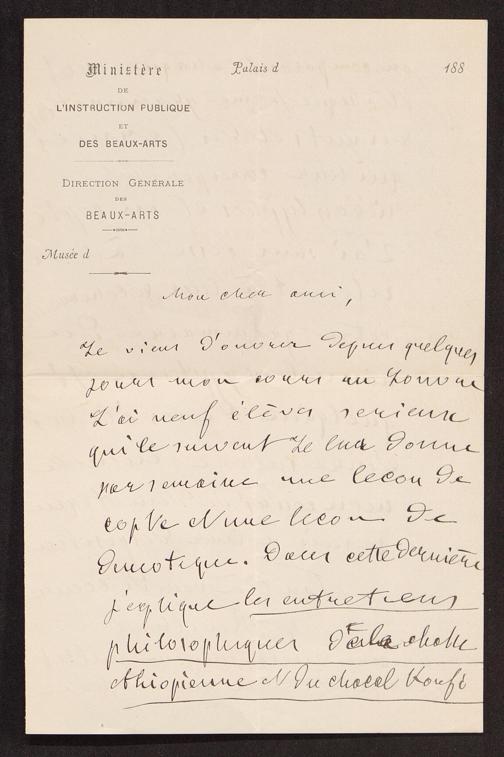 Ministère
DE
L'INSTRUCTION PUBLIQUE
ET
DES BEAUX-ARTS
DIRECTION GÉNÉRALE
DES
BEAUX-ARTS
Musée d
Palais d
188
Mon cher ami,
Je viens d'ouvrir depuis quelques
jours mon cours au Louvre
J'ai neuf élèves serieux
qui le suivent Je leur donne
par semaine une lecon de
copte et une lecon de
demotique. Dans cette dernière
j'explique les entretiens
philosophiques de la chatte
ethiopienne et du chacal Koufi